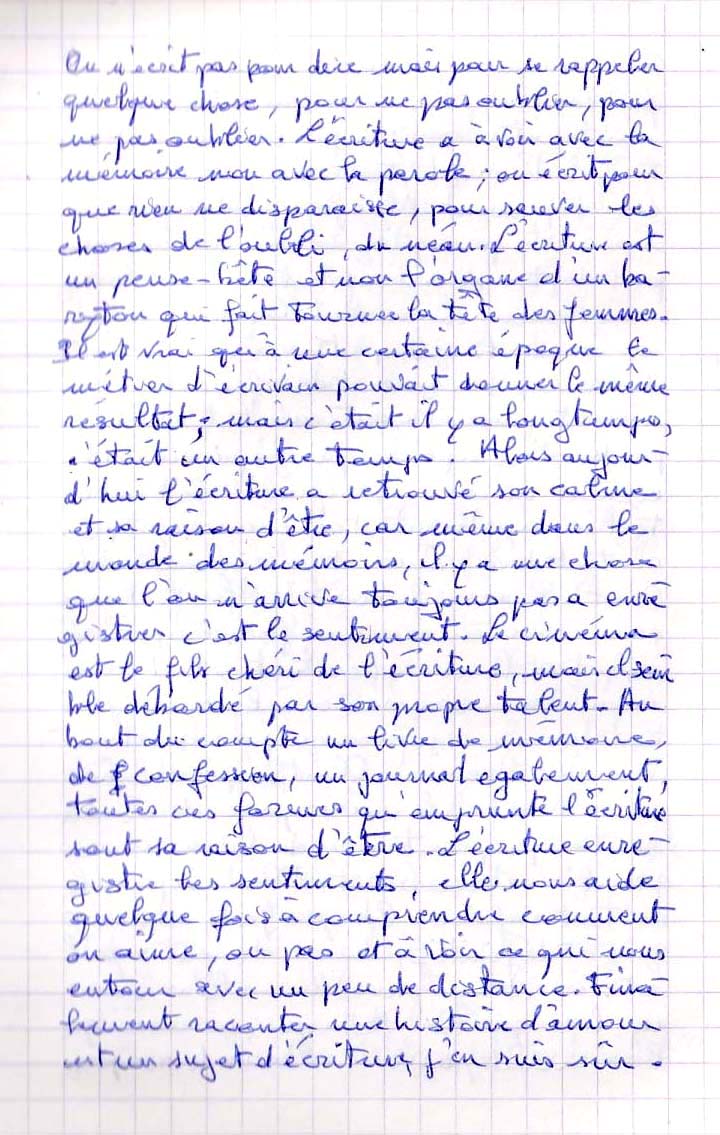 On n'écrit pas pour dire mais pour se rappeler
quelque chose, pour ne pas oublier, pour
ne pas oublier. L'écriture a à voir avec la
mémoire non avec la parole ; on écrit pour
que rien ne disparaisse, pour sauver les
choses de l'oubli, du néan. L'écriture est
un pense-bête et non l'organe d'un ba-
ryton qui fait tourner la tête des femmes.
Il est vrai qu'à une certaine époque le
métier d'écrivain pouvait donner le même
résultat ; mais c'était il y a longtemps,
c'était un autre temps. Alors aujour-
d'hui l'écriture a retrouvé son calme
et sa raison d'être, car même dans le
monde des mémoirs, il y a une chose
que l'on n'arrive toujours pas a enre
gistrer c'est le sentiment. Le cinéma
est le fils chéri de l'écriture, mais il sem
ble débordé par son propre talent. Au
bout du compte un livre de mémoire,
de confession, un journal egalement,
toutes ces formes qu'emprunte l'écriture
sont sa raison d'être. L'écriture enre-
gistre les sentiments, elle nous aide
quelque fois à comprendre comment
on aime, ou pas et à voir ce qui nous
entour avec un peu de distance. Fina
lement raconter une histoire d'amour
est un sujet d'écriture, j'en suis sûr.